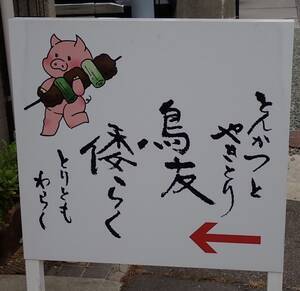 とんかつと
やきとり
鳥友
倭らく
とりとも
わらく